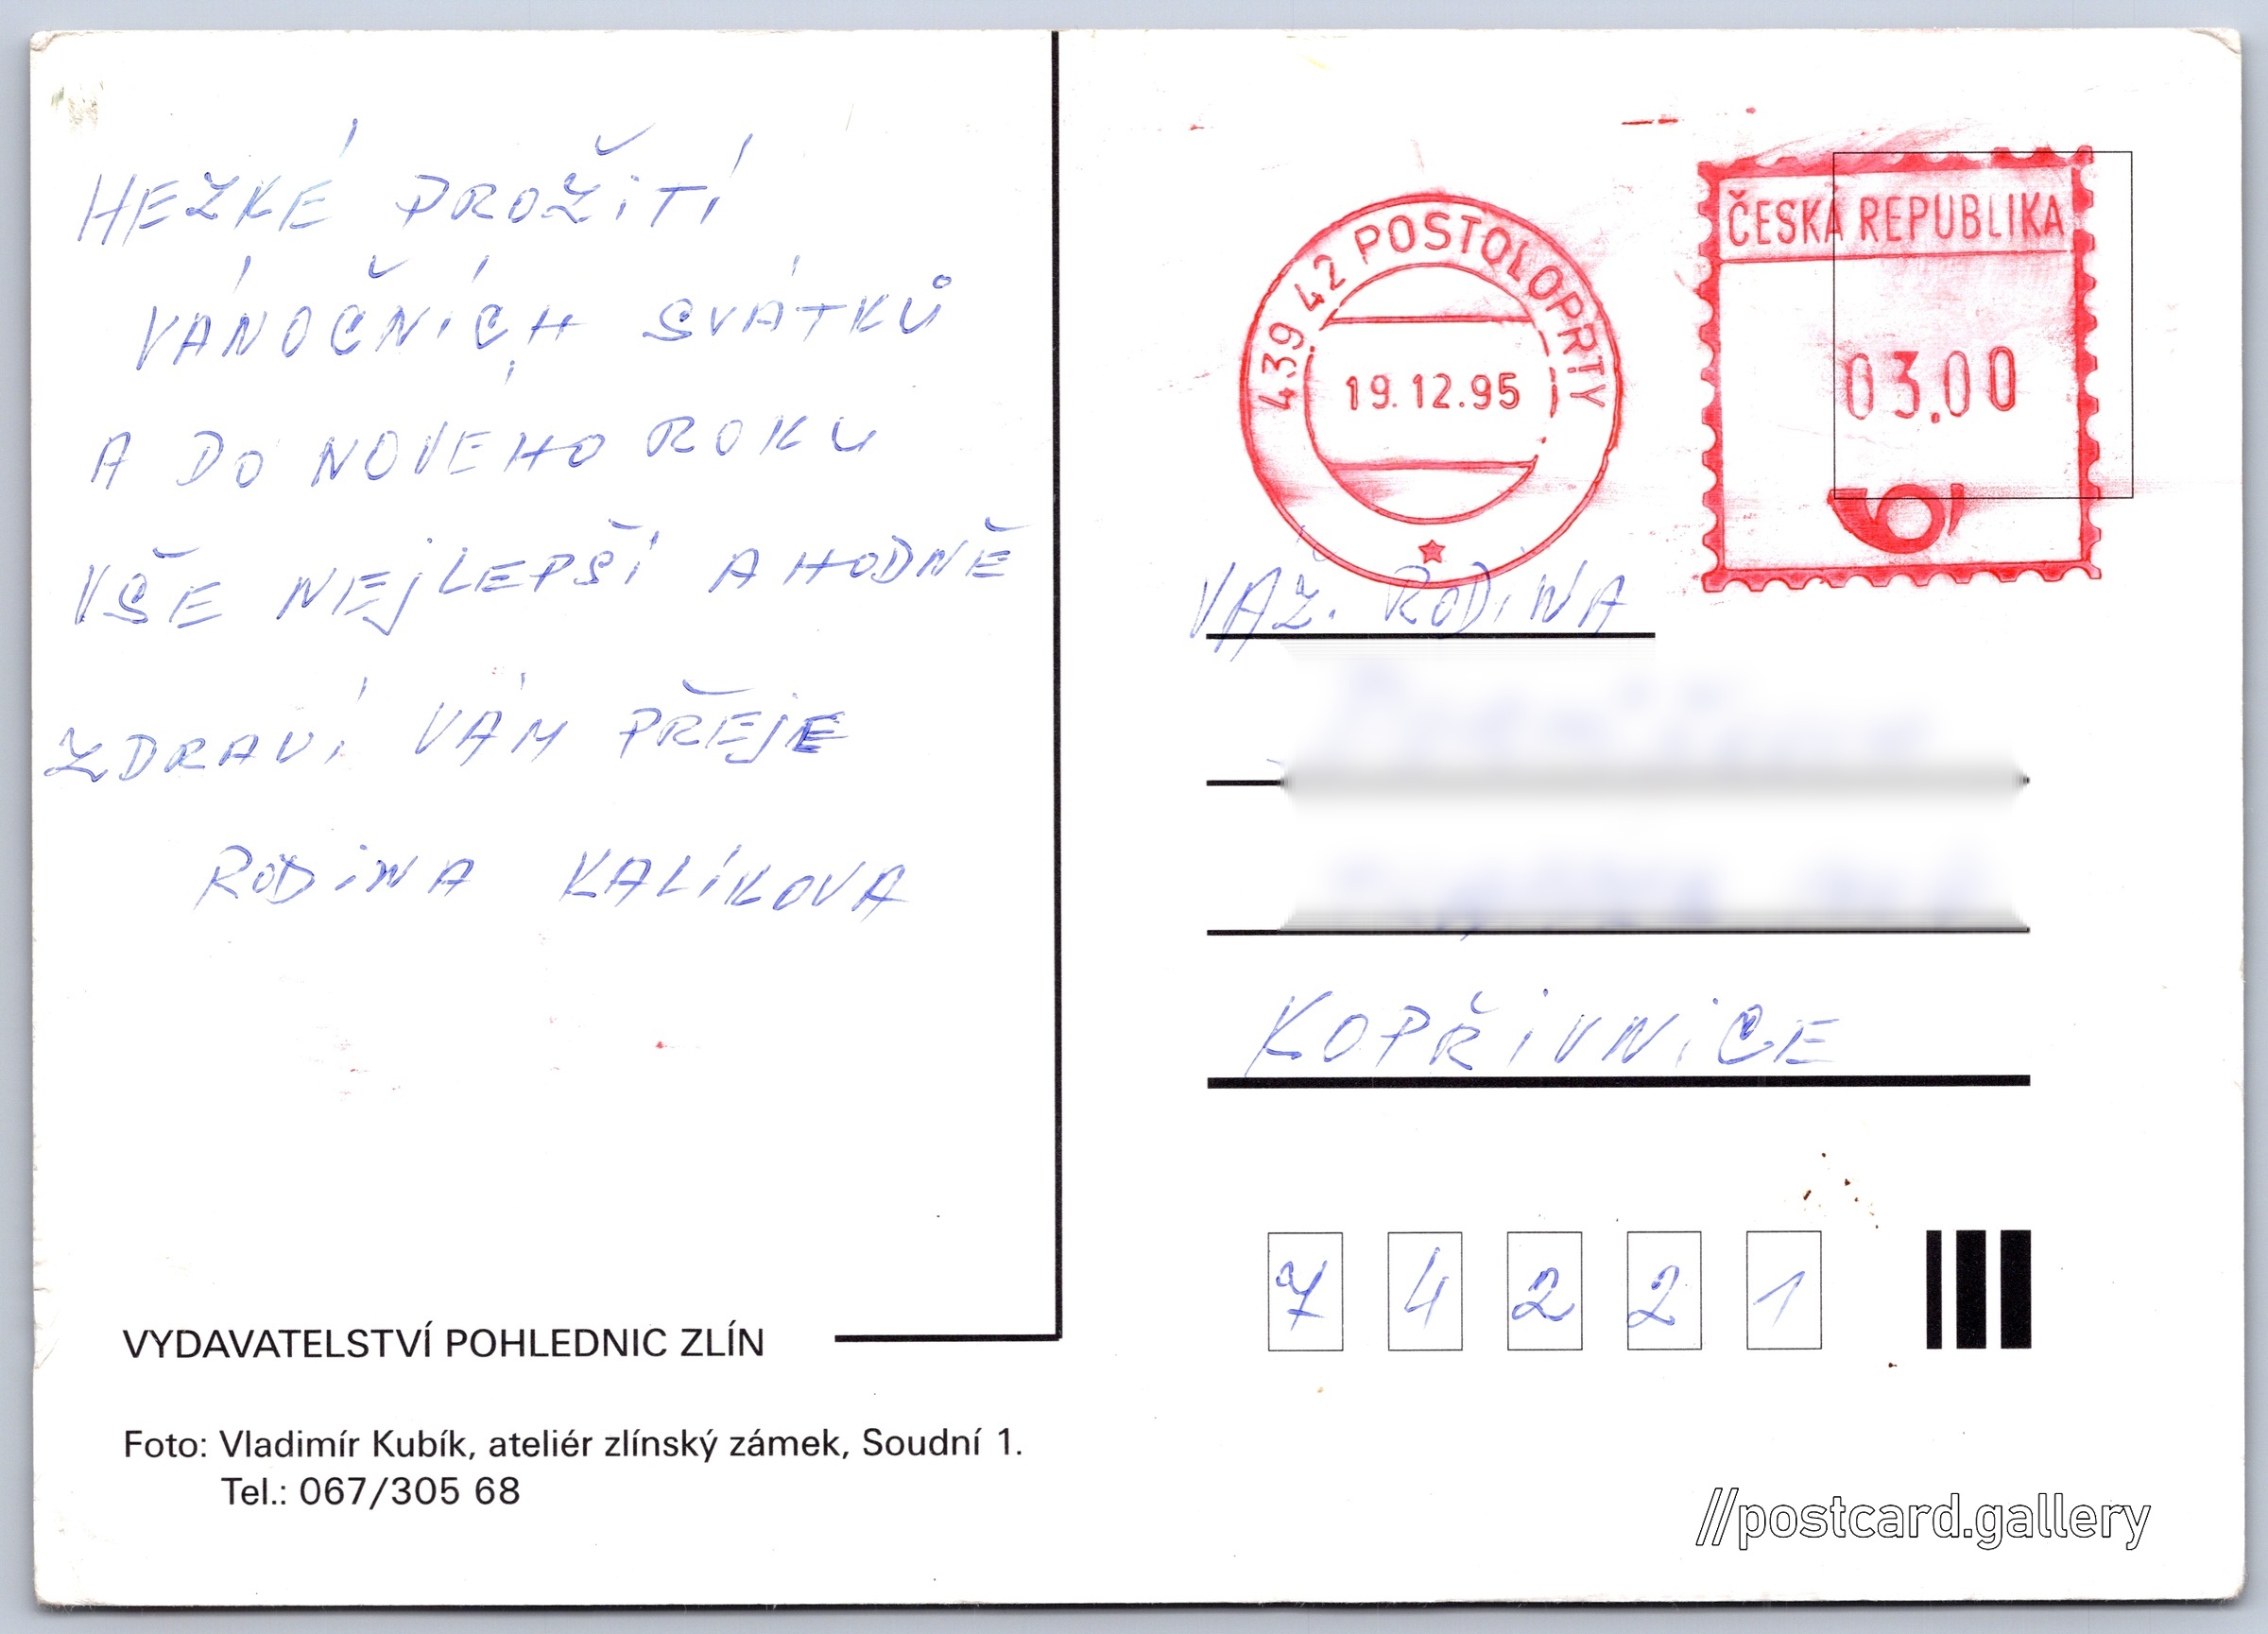 HEZKÉ PROŽITÍ
VÁNOČNÍCH SVÁTKŮ
A DO NOVÉHO ROKU
VŠE NEJLEPŠÍ A HODNĚ
ZDRAVÍ VÁM PŘEJE
RODINA KALÍKOVA
VYDAVATELSTVÍ POHLEDNIC ZLÍN
Foto: Vladimír Kubík, ateliér zlínský zámek, Soudní 1.
Tel.: 067/305 68
439 42 POSTOLOPRTY
19.12.95
ČESKÁ REPUBLIKA
03.00
VÁŽ. RODINA
KOPŘIVNICE
7 4 2 2 1
//postcard.gallery